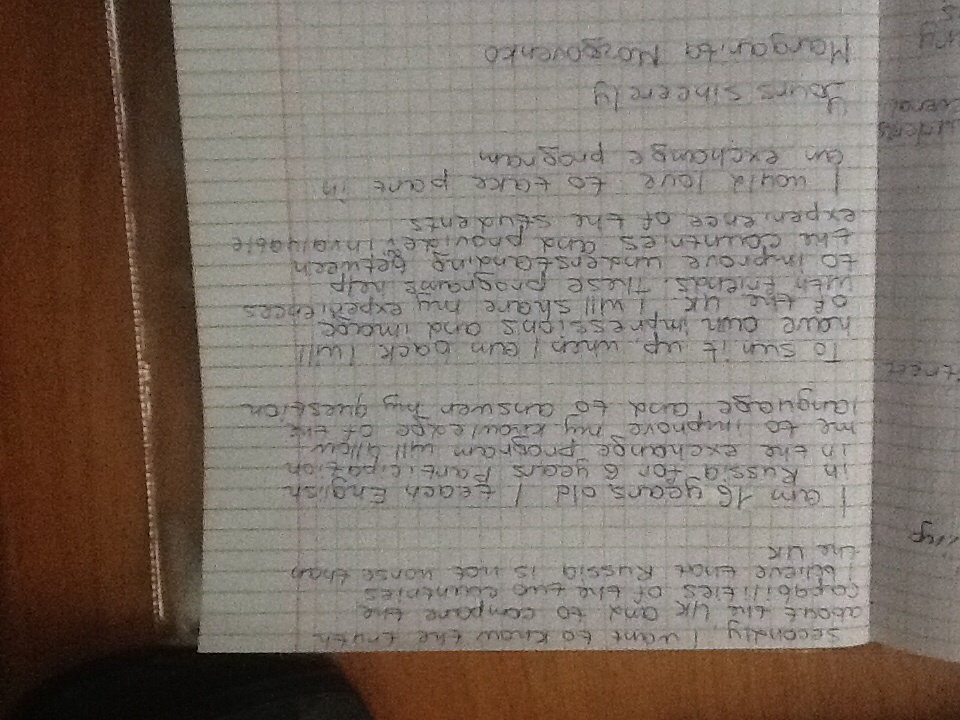 Secondly, I want to know the truth
about the UK and to compare the
capabilities of the two countries
I believe that Russia is not worse than
the UK
I am 16 years old. I teach English
in Russia for 6 years. Participation
in the exchange program will allow
me to improve my knowledge of the
language and to answer my question
To sum it up, when I am back I will
have own impressions and image
of the UK. I will share my experiences
with friends. These programs help
to improve understanding between
the countries and provides invaluable
experience of the students
I would love to take part in
an exchange program
Yours sincerely
Margarita Mozgovenko